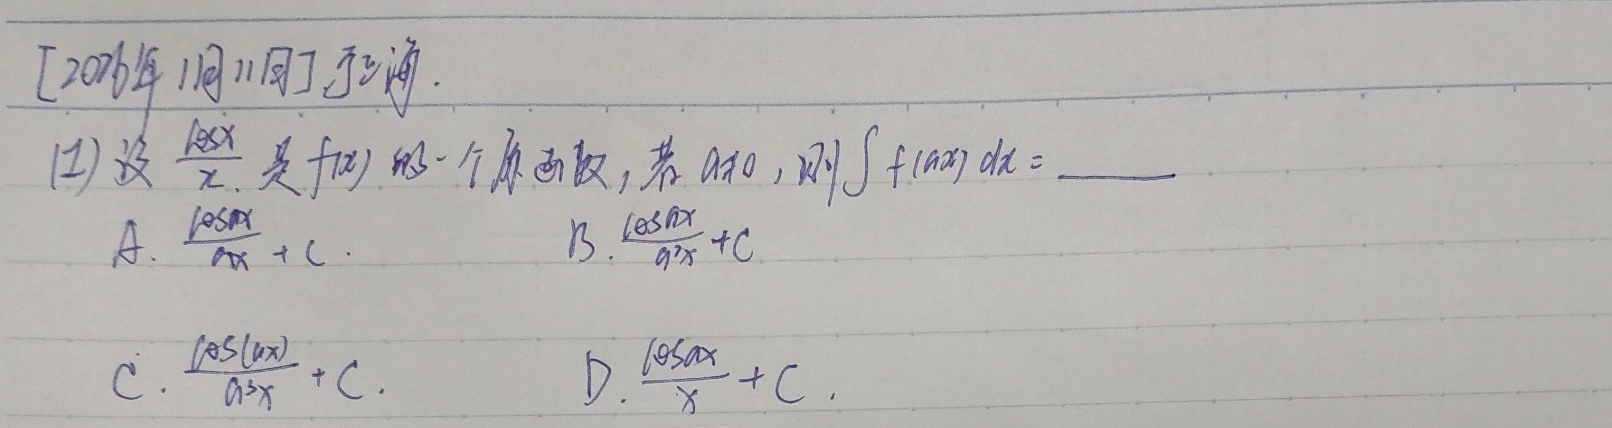 [2026年11月11日]于上海.
(1)设 cosx/x 是 f(x) 的一个原函数,若 a≠0,则∫f(ax)dx=______
A. cosax/ax + C. B. cosax/a²x + C
C. cos(ax)/a³x + C. D. cosax/x + C.